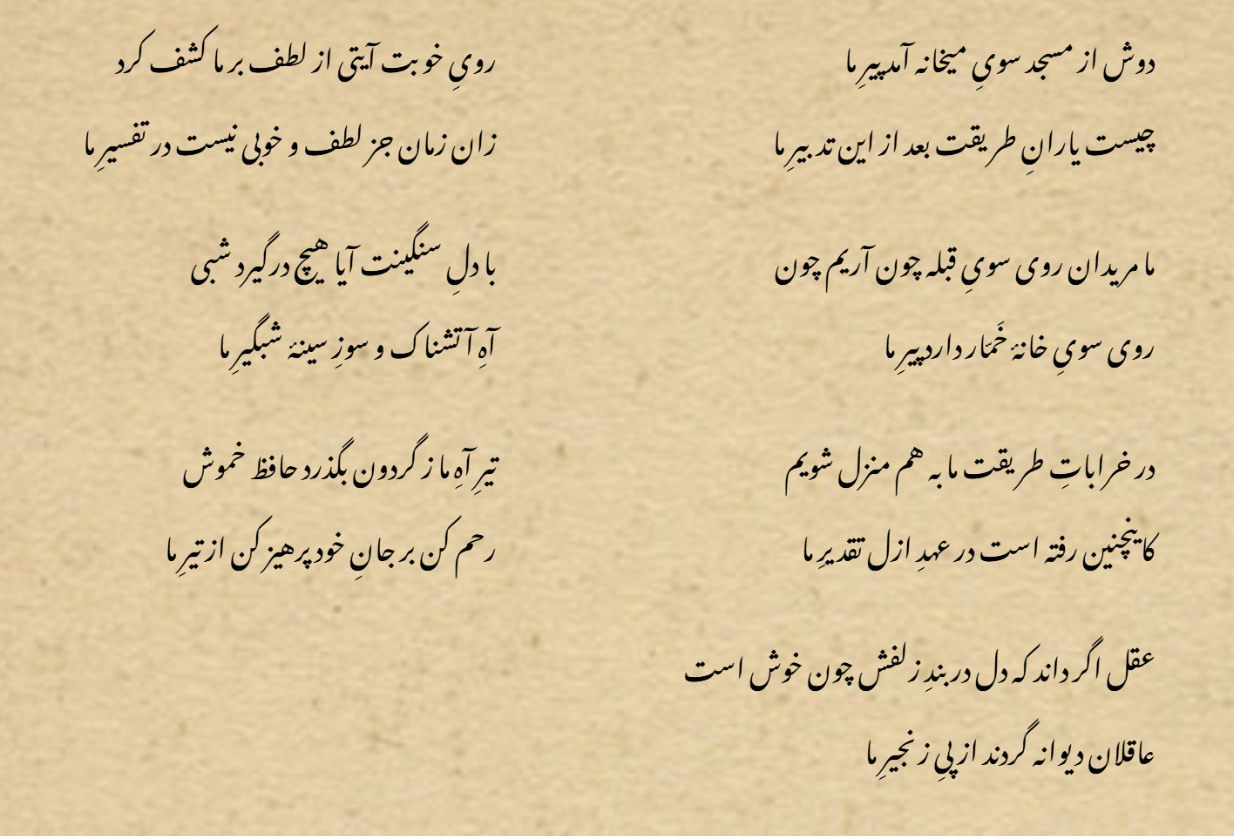 دوش از مسجد سویِ میخانه آمد پیرِ ما
چیست یارانِ طریقت بعد از این تدبیرِ ما
ما مریدان روی سویِ قبله چون آریم چون
روی سویِ خانهٔ خَمّار دارد پیرِ ما
در خراباتِ طریقت ما به هم منزل شویم
کاینچنین رفته است در عهدِ ازل تقدیرِ ما
عقل اگر داند که دل دربندِ زلفش چون خوش است
عاقلان دیوانه گردند از پیِ زنجیرِ ما
رویِ خوبت آیتی از لطف بر ما کشف کرد
زان زمان جز لطف و خوبی نیست در تفسیرِ ما
با دلِ سنگینت آیا هیچ درگیرد شبی
آهِ آتشناک و سوزِ سینهٔ شبگیرِ ما
تیرِ آهِ ما ز گردون بگذرد حافظ خموش
رحم کن بر جانِ خود پرهیز کن از تیرِ ما